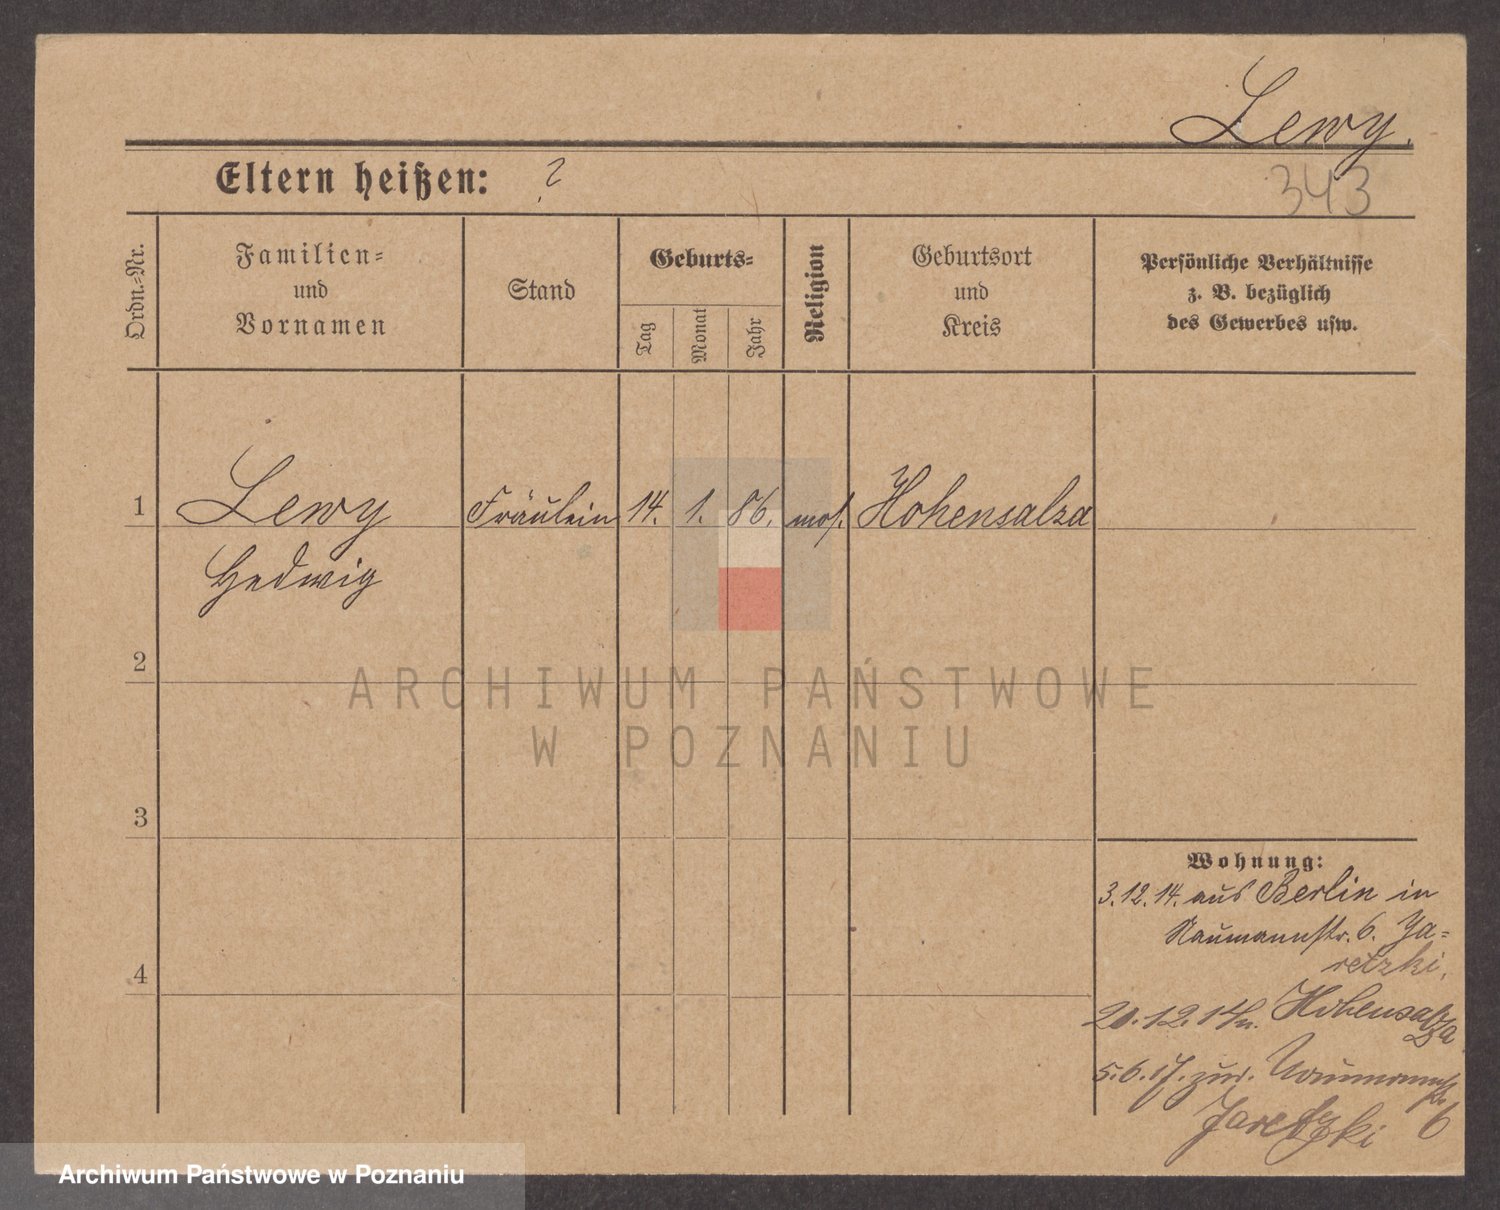 Lewy.
Eltern heißen: ?
343
Ordn.-Nr.
Familien-
und
Vornamen
Stand
Geburts-
Tag
Monat
Jahr
Religion
Geburtsort
und
Kreis
Persönliche Verhältnisse
z. B. bezüglich
des Gewerbes usw.
1 Lewy Fräulein 14. 1. 86. mos. Hohensalza
Hedwig
2
ARCHIWUM PAŃSTWOWE
W POZNANIU
3
Wohnung:
3.12.14. aus Berlin in
Naumannstr. 6. Ja-
retzki.
4
20.12.14 n. Hohensalza
5.6.17. zur. Naumannstr 6
Jaretzki
Archiwum Państwowe w Poznaniu